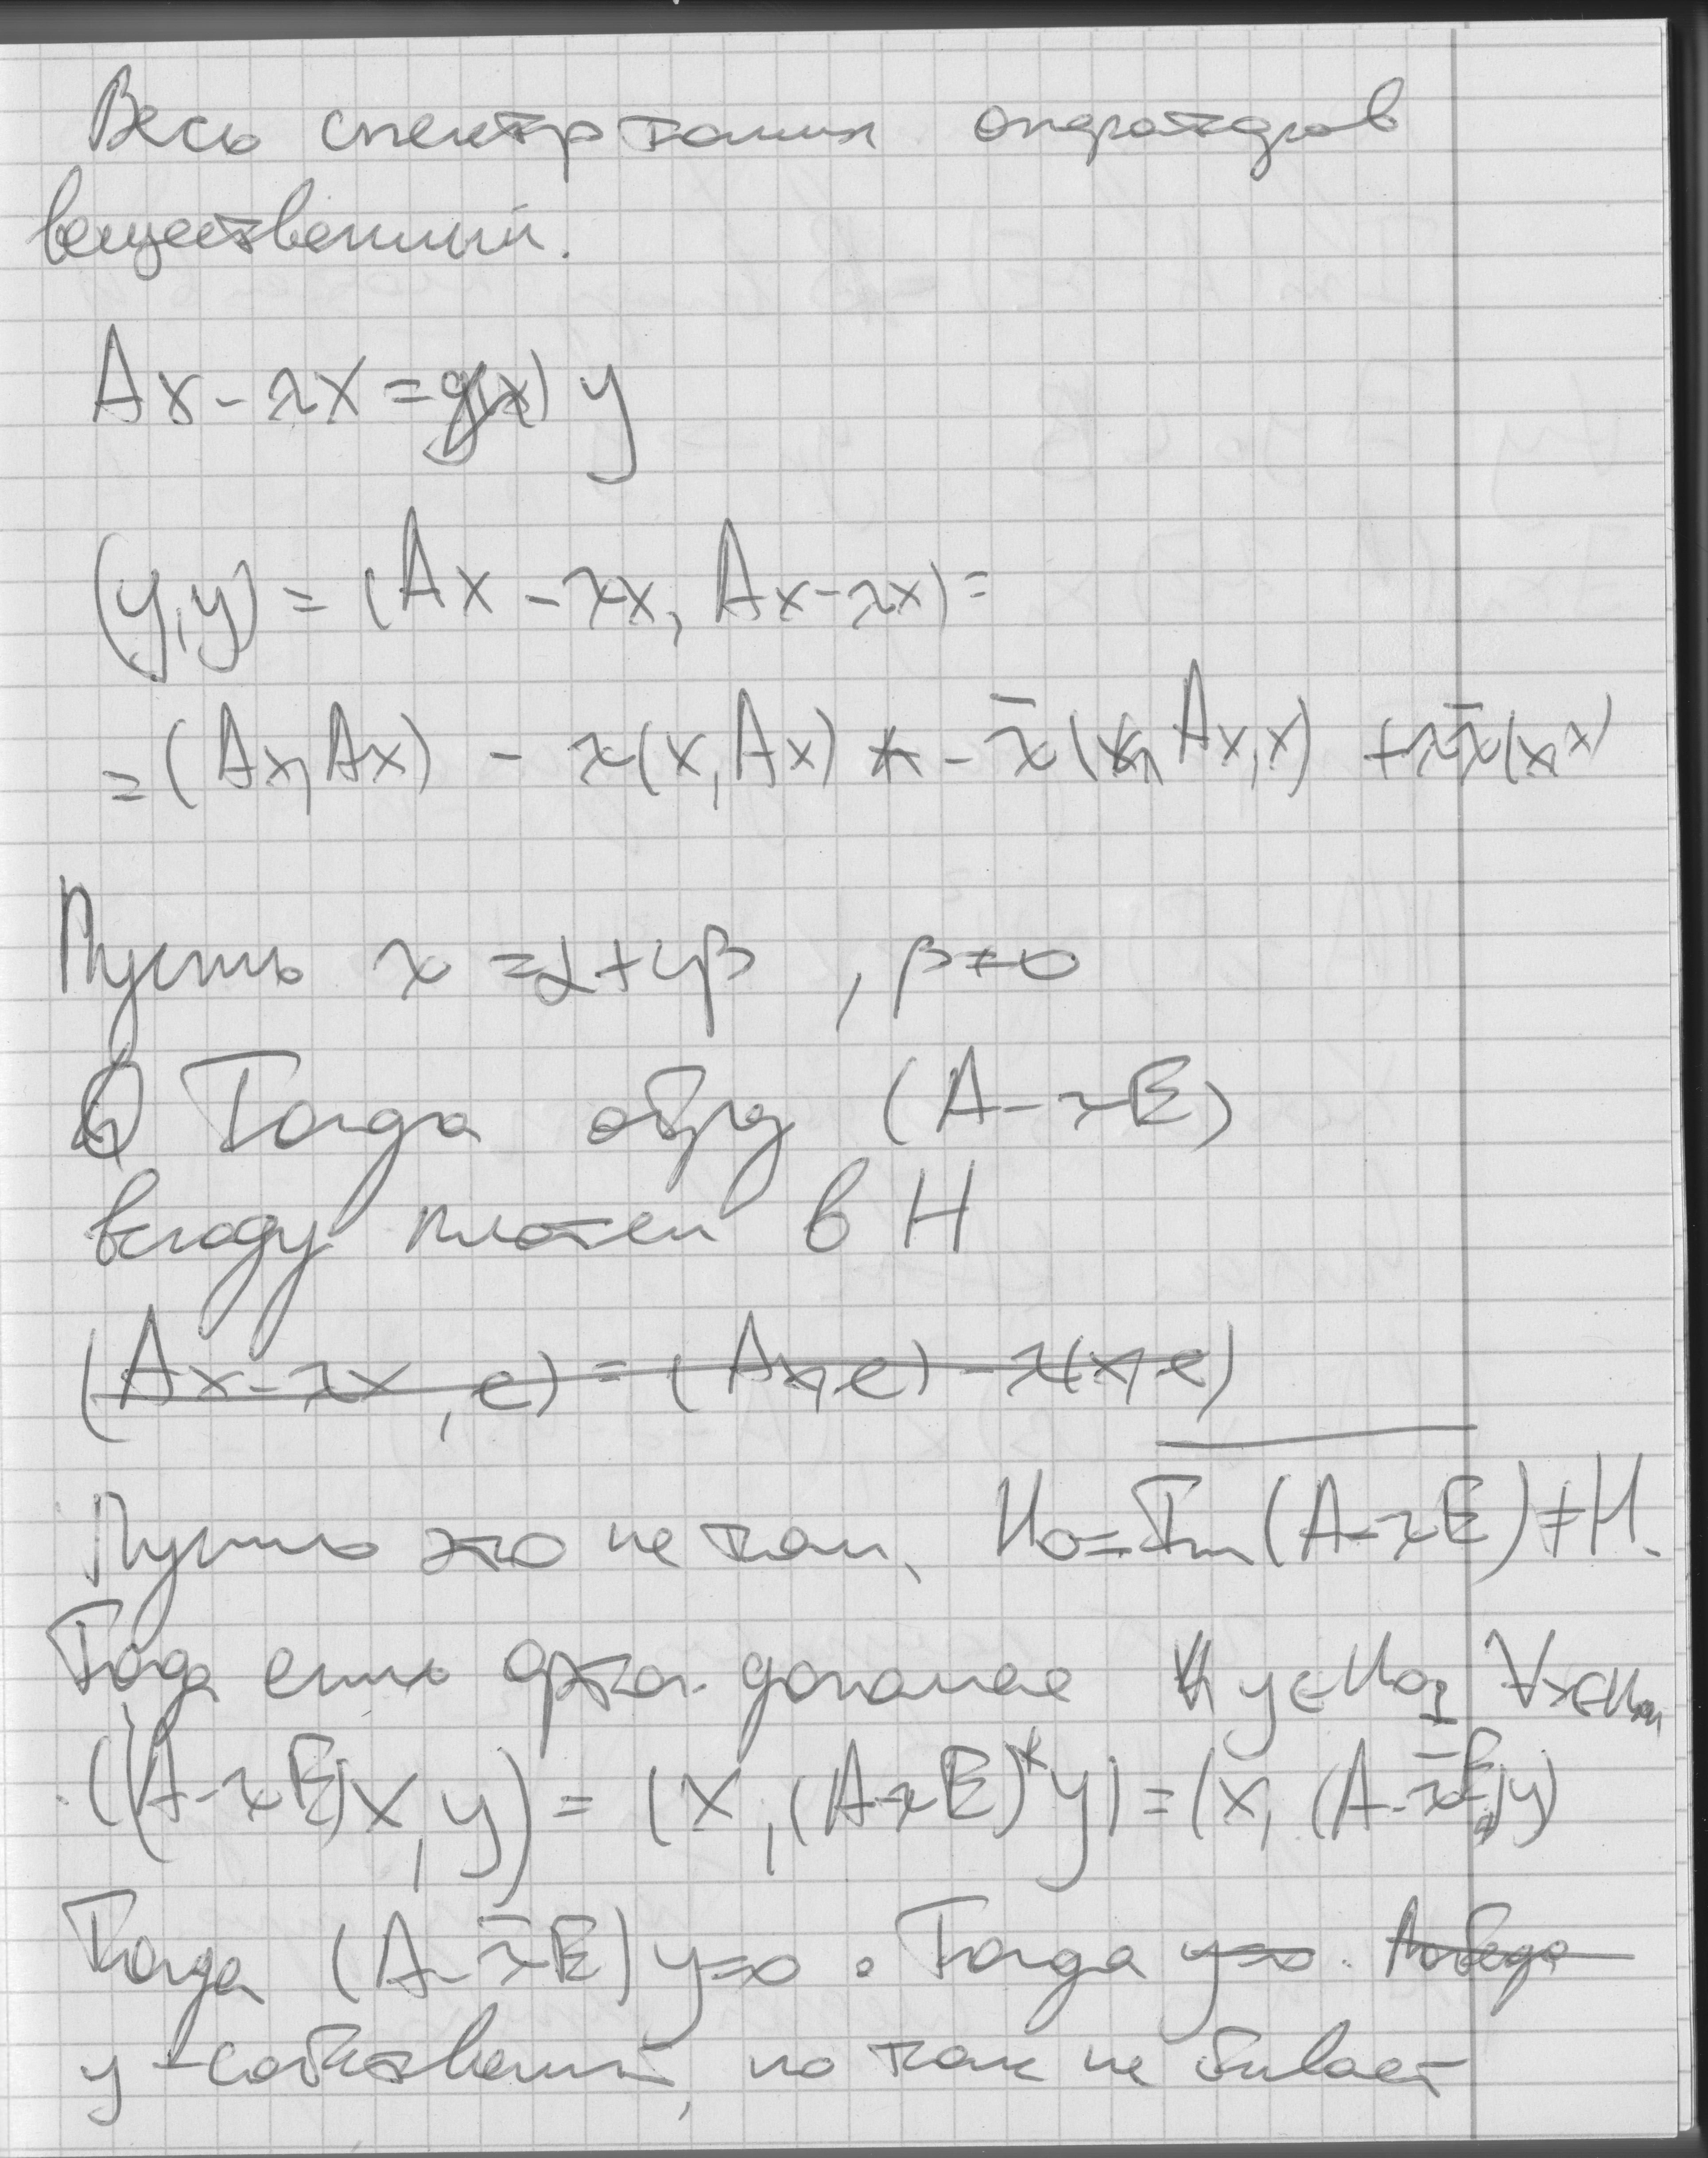 Весь спектр таких операторов
вещественный.
Ax - λx = g(x) y
(y,y) = (Ax - λx, Ax - λx) =
= (Ax, Ax) - λ(x, Ax) - λ̄(Ax, x) + λλ̄(x,x)
Пусть λ = α + iβ , β ≠ 0
Тогда образ (A - λE)
всюду плотен в H
(Ax - λx, e) = (Ax, e) - λ(x, e)
Пусть это не так, H₀ = Im(A - λE) ≠ H.
Тогда есть ортог. дополнение y ∈ H₀⊥ ∀x ∈
((A - λE)x, y) = (x, (A - λE)*y) = (x, (A - λ̄E)y)
Тогда (A - λ̄E)y = 0 . Тогда y = 0.
y - собственный, но так не бывает